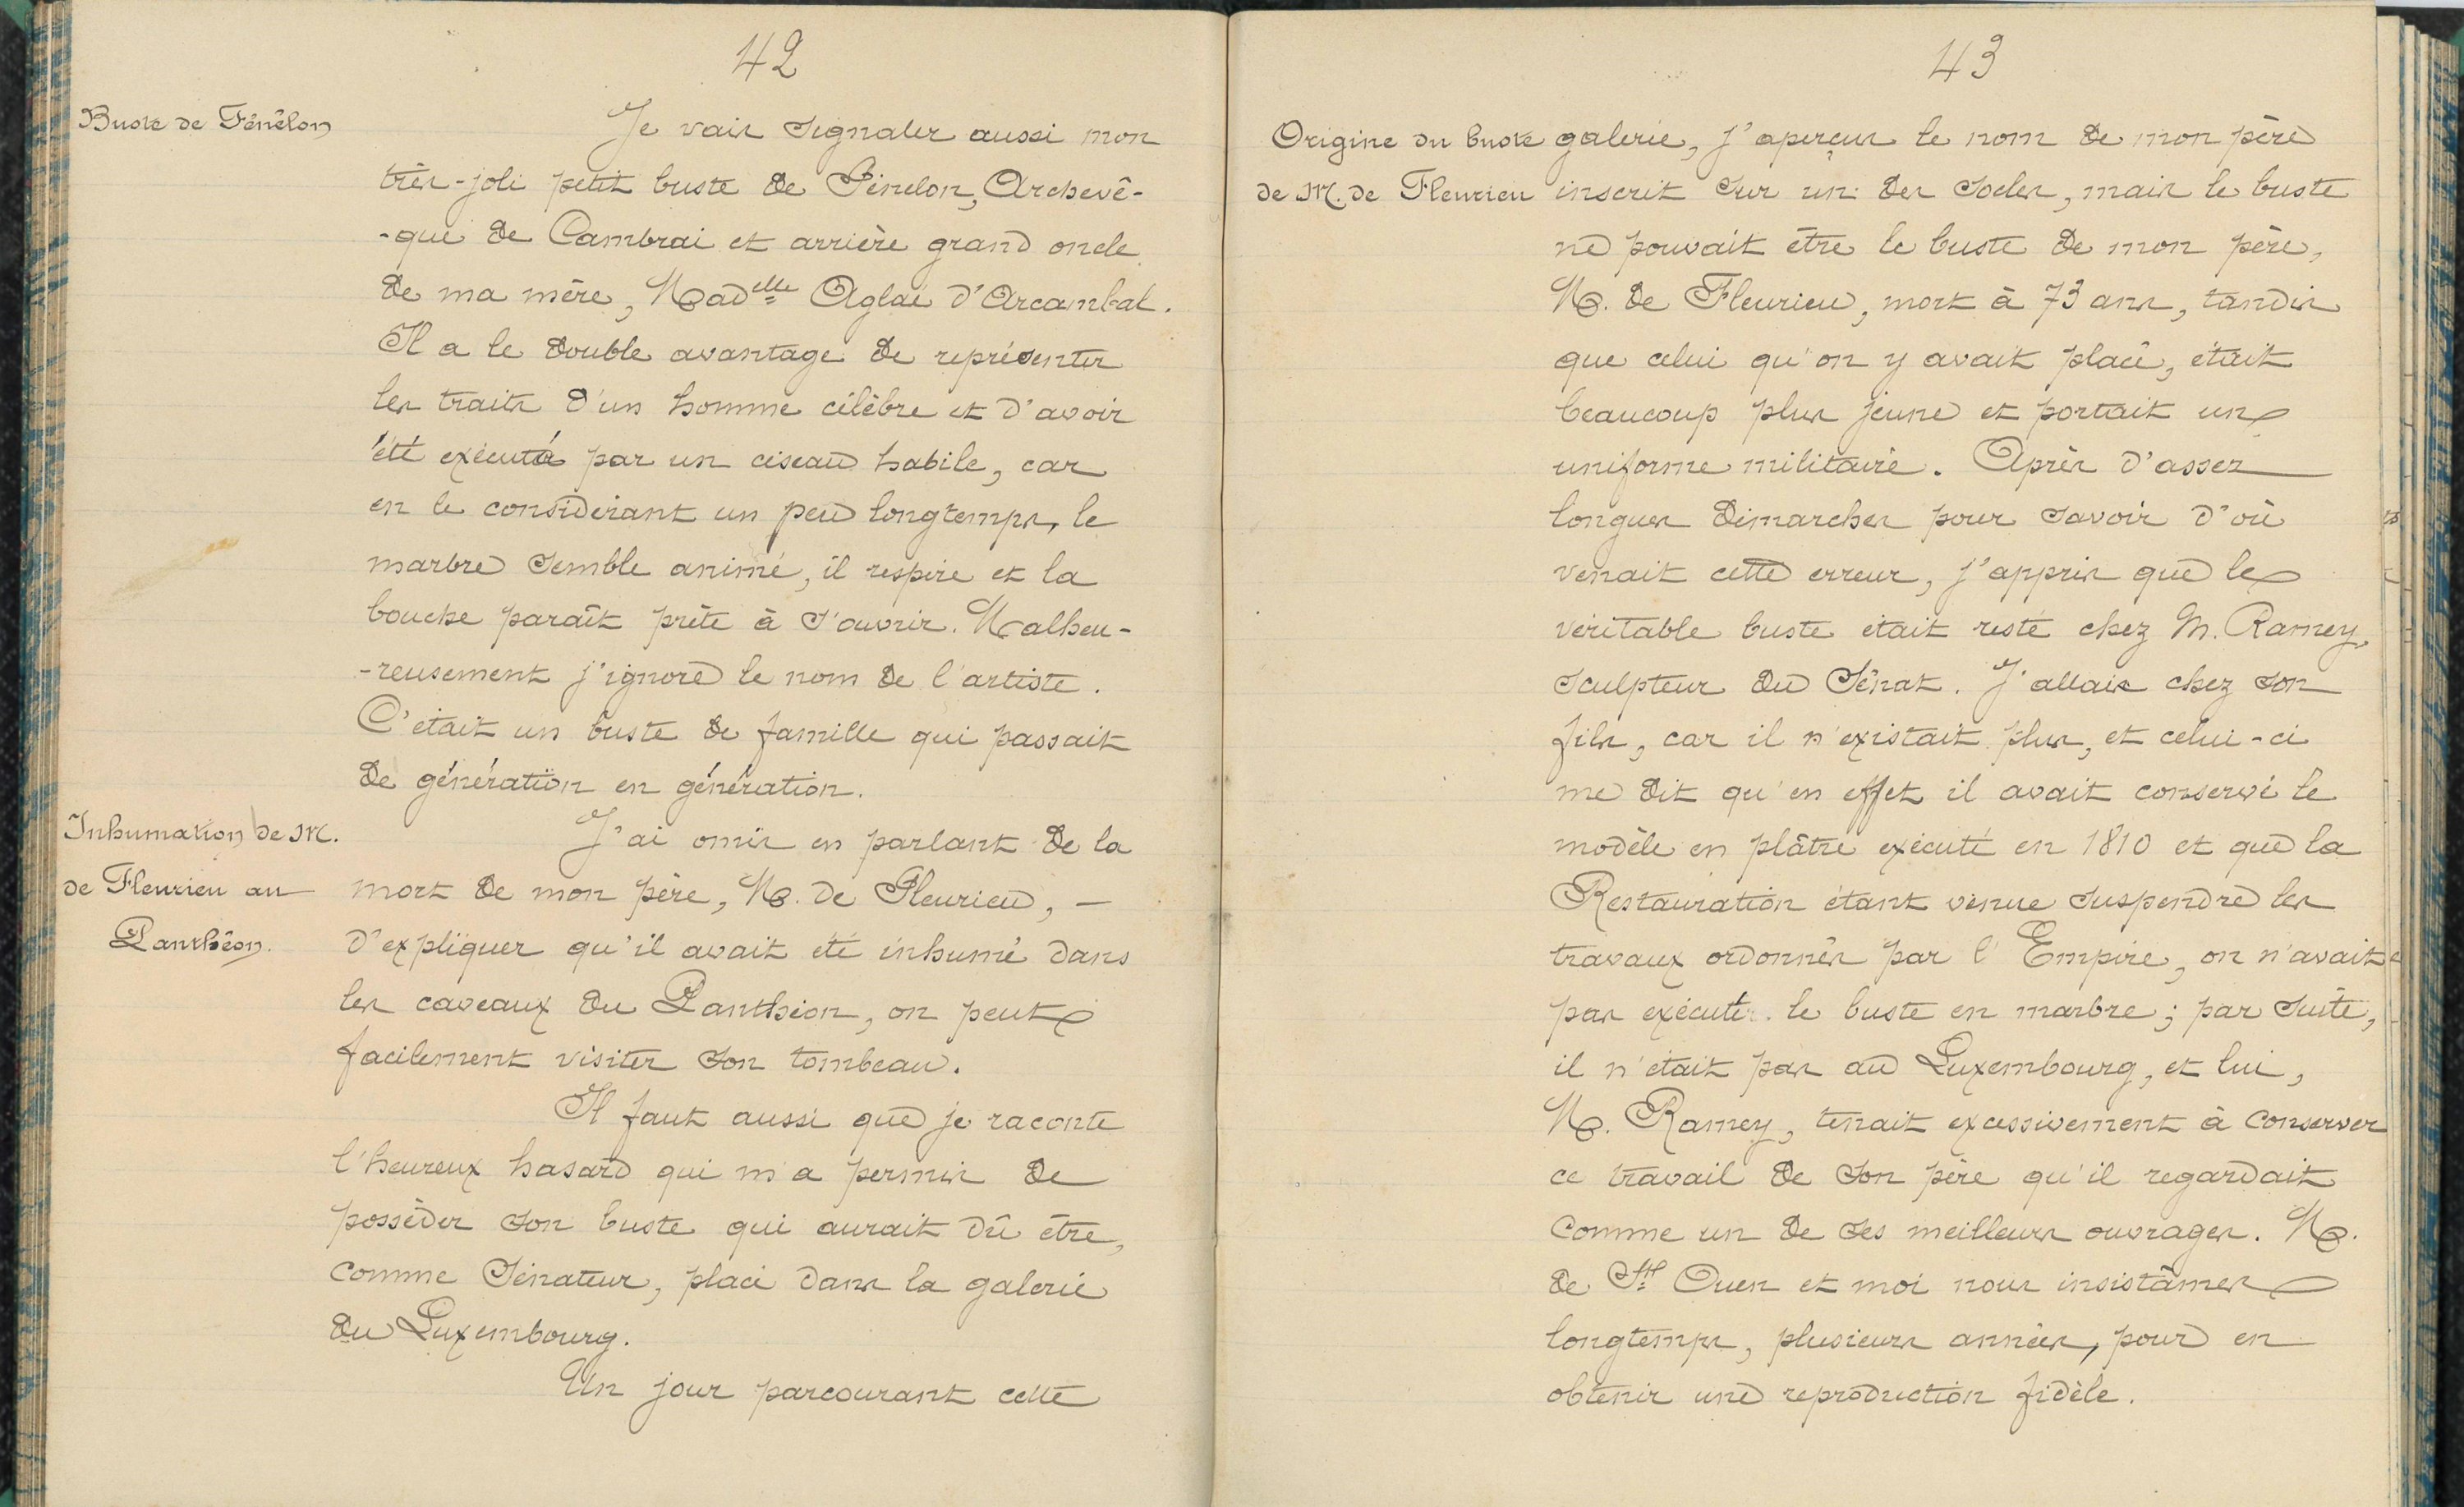 42
Buste de Fénélon
Je vais signaler aussi mon
très-joli petit buste de Fénelon, Archevê-
-que de Cambrai et arrière grand oncle
de ma mère, Mad<sup>elle</sup> Aglaé d'Arcambal.
Il a le double avantage de représenter
les traits d'un homme célèbre et d'avoir
été exécuté par un ciseau habile, car
en le considérant un peu longtemps, le
marbre semble animé, il respire et la
bouche paraît prête à s'ouvrir. Malheu-
-reusement j'ignore le nom de l'artiste.
C'était un buste de famille qui passait
de génération en génération.
Inhumation de M.
de Fleurieu au
Panthéon.
J'ai omis en parlant de la
mort de mon père, M. de Fleurieu, —
d'expliquer qu'il avait été inhumé dans
les caveaux du Panthéon, on peut
facilement visiter son tombeau.
Il faut aussi que je raconte
l'heureux hasard qui m'a permis de
posséder son buste qui aurait dû être,
comme Sénateur, placé dans la galerie
du Luxembourg.
Un jour parcourant cette
43
Origine du buste
de M. de Fleurieu
galerie, j'aperçus le nom de mon père
inscrit sur un des socles, mais le buste
ne pouvait être le buste de mon père,
M. de Fleurieu, mort à 73 ans, tandis
que celui qu'on y avait placé, était
beaucoup plus jeune et portait un
uniforme militaire. Après d'assez
longues démarches pour savoir d'où
venait cette erreur, j'appris que le
véritable buste était resté chez M. Ramey,
sculpteur du Sénat. J'allais chez son
fils, car il n'existait plus, et celui-ci
me dit qu'en effet il avait conservé le
modèle en plâtre exécuté en 1810 et que la
Restauration étant venue suspendre les
travaux ordonnés par l'Empire, on n'avait
pas exécuté le buste en marbre; par suite,
il n'était pas au Luxembourg, et lui,
M. Ramey, tenait excessivement à conserver
ce travail de son père qu'il regardait
comme un de ses meilleurs ouvrages. M.
de S<sup>t</sup> Ouen et moi nous insistâmes
longtemps, plusieurs années, pour en
obtenir une reproduction fidèle.